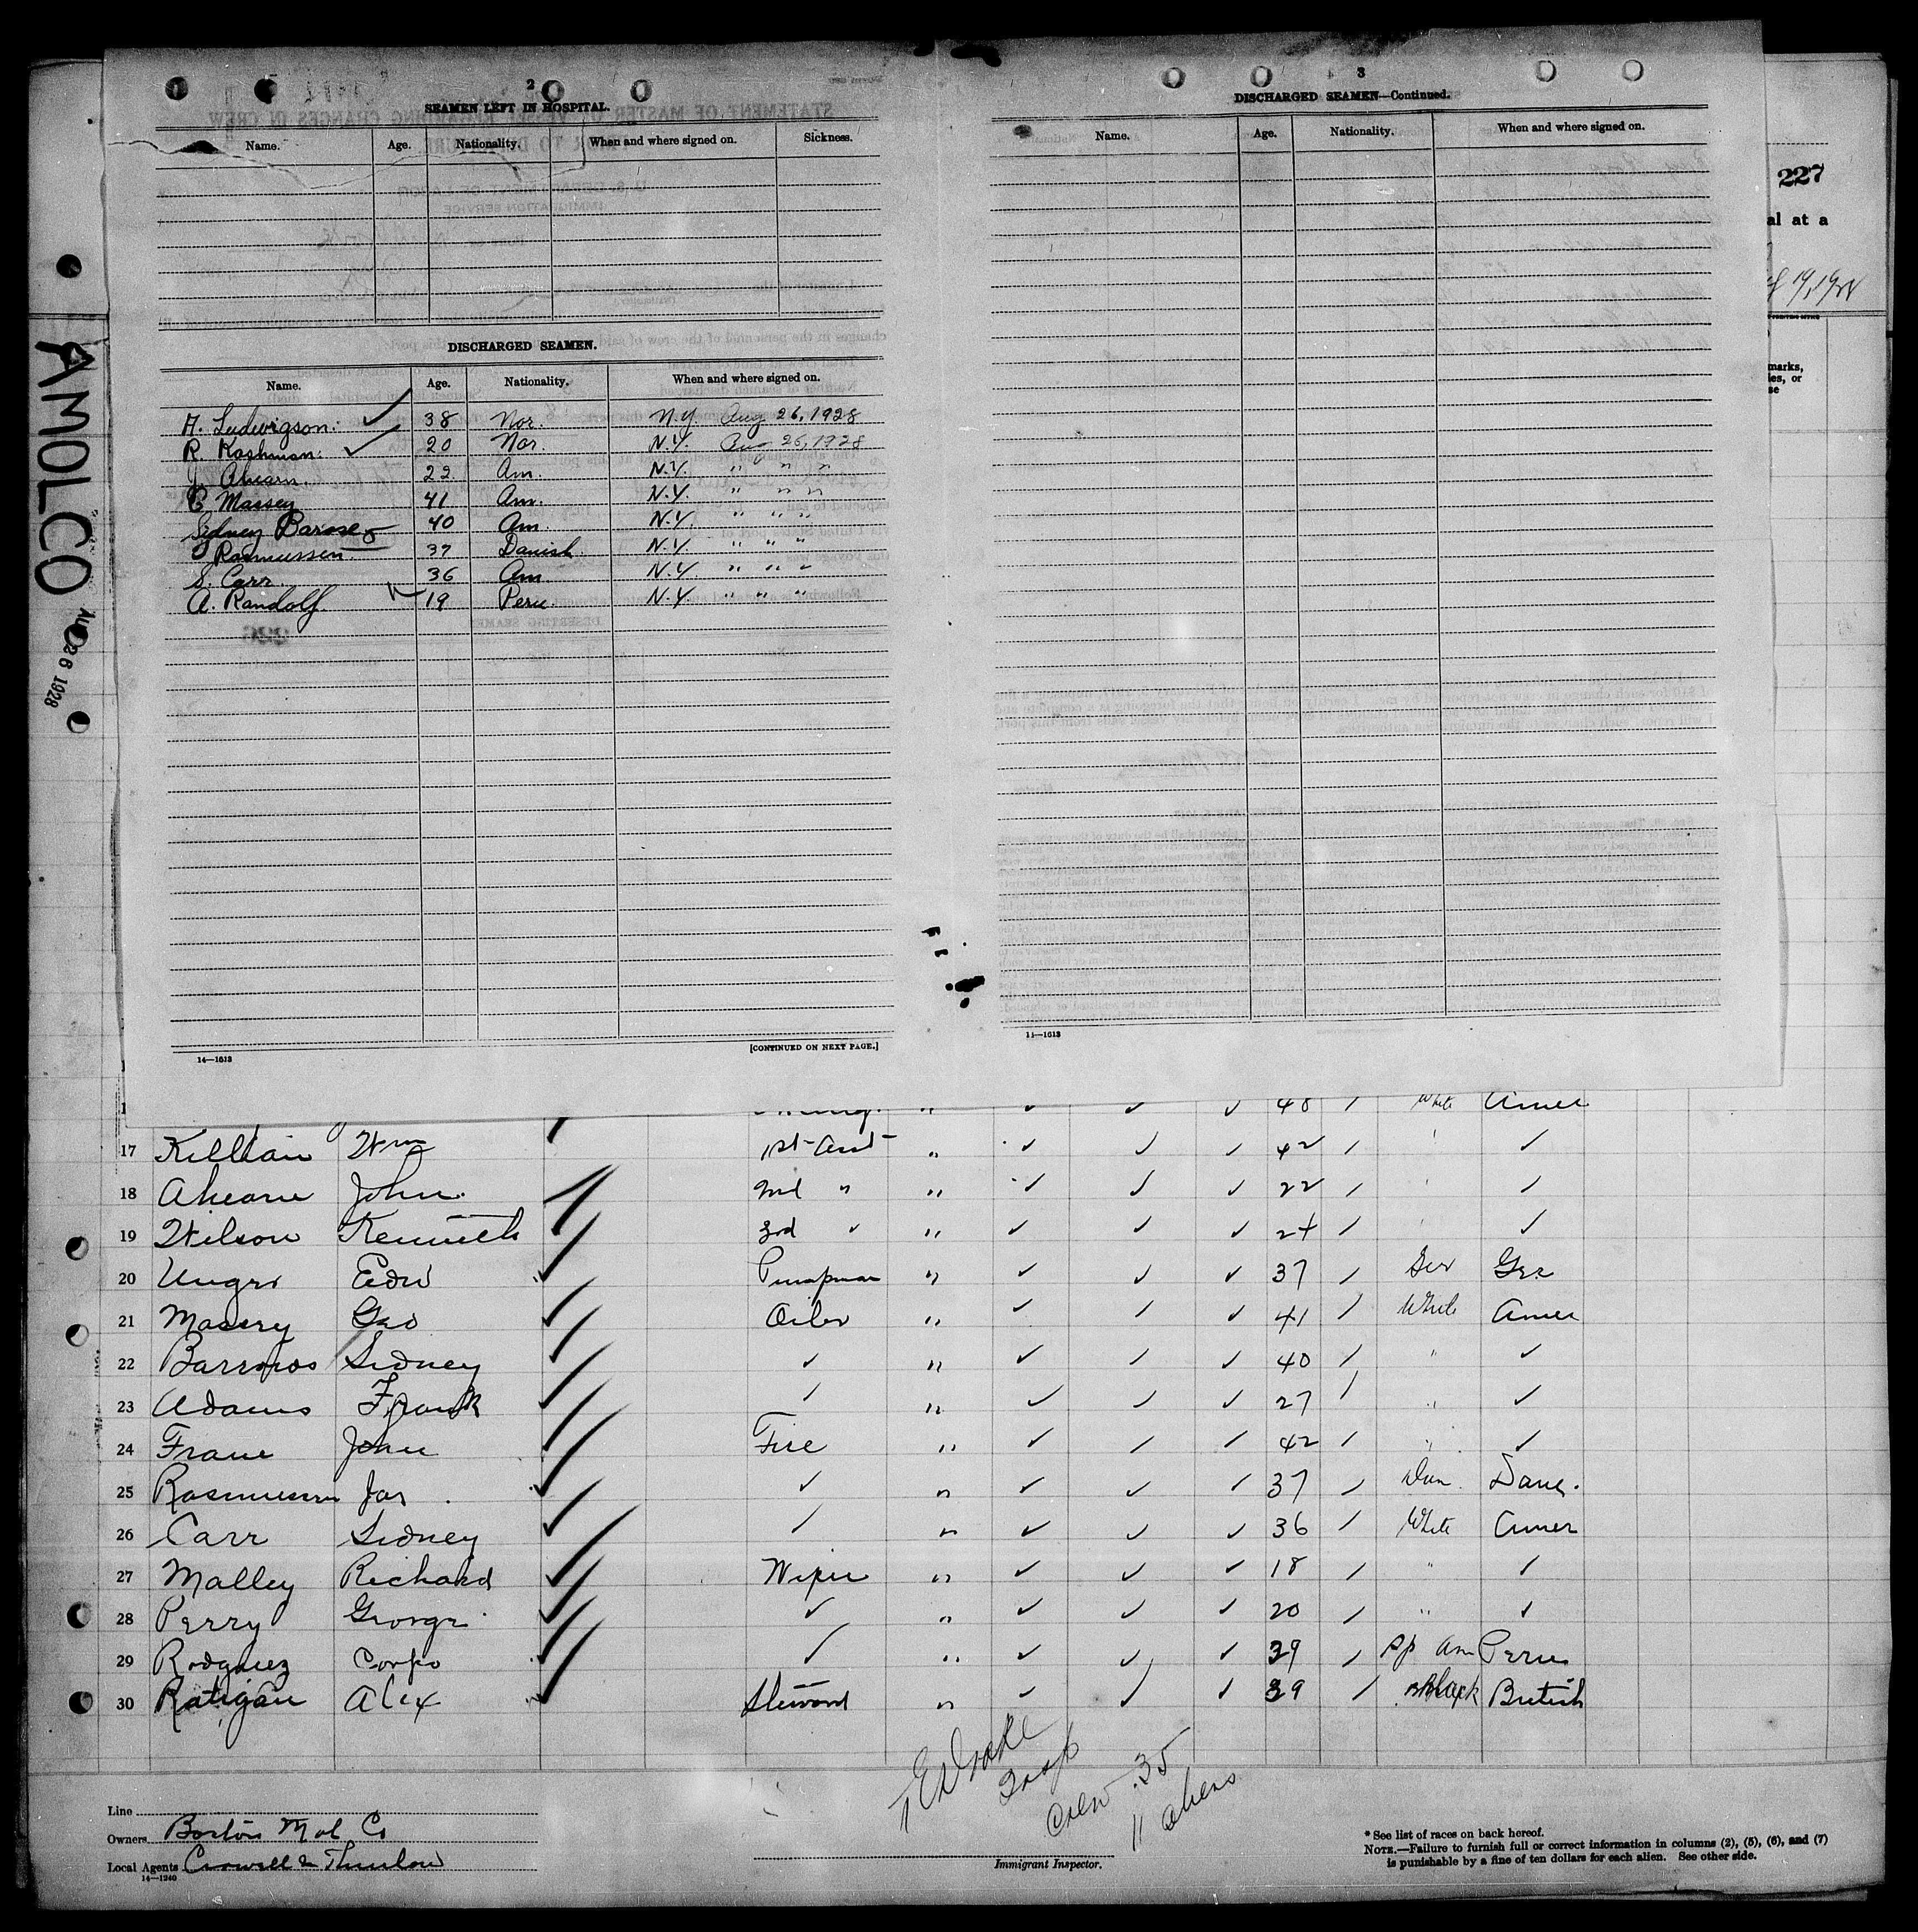 2
SEAMEN LEFT IN HOSPITAL.
Name. Age. Nationality. When and where signed on. Sickness.
DISCHARGED SEAMEN.
Name. Age. Nationality. When and where signed on.
A. Ludwigson. 38 Nor. N.Y. Aug 26, 1928
R. Kashman. 20 Nor. N.Y. Aug 26, 1928
J. Ahearn. 22 Am. N.Y. " " "
G Massey 41 Am. N.Y. " " "
Sidney Barose 40 Am. N.Y. " " "
Rasmussen 37 Danish. N.Y. " " "
S. Carr. 36 Am. N.Y. " " "
A. Randolf. 19 Peru. N.Y. " " "
14—1613
[CONTINUED ON NEXT PAGE.]
3
DISCHARGED SEAMEN—Continued.
Name. Age. Nationality. When and where signed on.
14—1613
227
al at a
marks,
ies, or
se
AMOLCO
26 1928
48 White Amer
17 Killian Wm 1st Asst " 42 ✓
18 Ahearne John 2nd " " 22 ✓
19 Wilson Kenneth 3rd " " 24 ✓
20 Unger Edw Pumpman " 37 Ger Ger
21 Massey Geo Oiler " 41 White Amer
22 Barrows Sidney ✓ " 40 " ✓
23 Adams Frank ✓ " 27 " ✓
24 Frane John Fire " 42 " ✓
25 Rasmussen Jas ✓ " 37 Dan. Dane.
26 Carr Sidney ✓ " 36 White Amer
27 Malley Richard Wiper " 18 " ✓
28 Perry George ✓ " 20 " ✓
29 Rodguez ✓ " 29 Sp Am Peru
30 Ratigan Alex Steward " 39 Black British
Crew 35
11 aliens
Line
Owners Boston Mol Co
Local Agents Crowell & Thurlow
14—1240
Immigrant Inspector.
* See list of races on back hereof.
NOTE.—Failure to furnish full or correct information in columns (2), (5), (6), and (7)
is punishable by a fine of ten dollars for each alien. See other side.